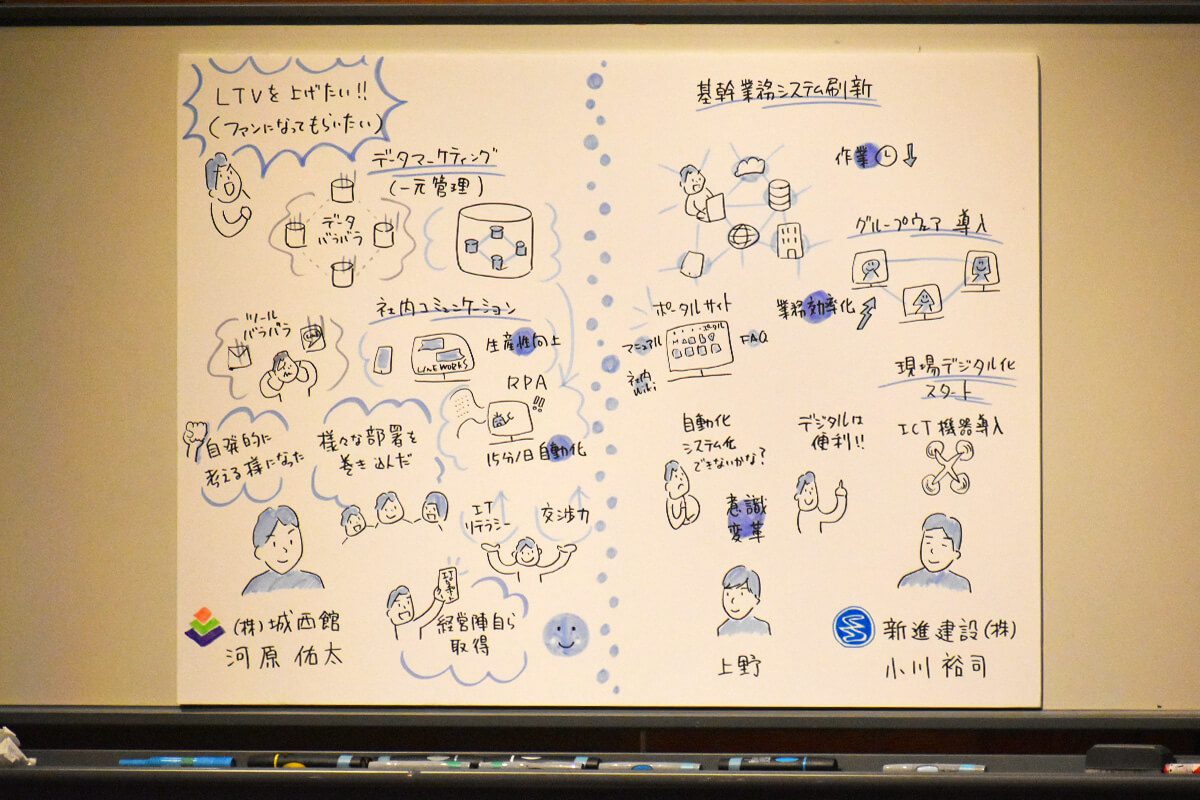 LTVを上げたい!!
(ファンになってもらいたい)
データマーケティング
(一元管理)
データ
バラバラ
社内コミュニケーション
ツール
バラバラ
LINE WORKS
生産性向上
RPA
!!
15分/日 自動化
自発的に
考える様になった
様々な部署を
巻き込んだ
IT
リテラシー
交渉力
経営陣自ら
取得
(株)城西館
河原 佑太
基幹業務システム刷新
作業
グループウェア導入
業務効率化
ポータルサイト
ポータル
マニュアル
FAQ
社内
Wiki
現場デジタル化
スタート
ICT機器導入
自動化
システム化
できないかな?
デジタルは
便利!!
意識
変革
上野
新進建設(株)
小川 裕司